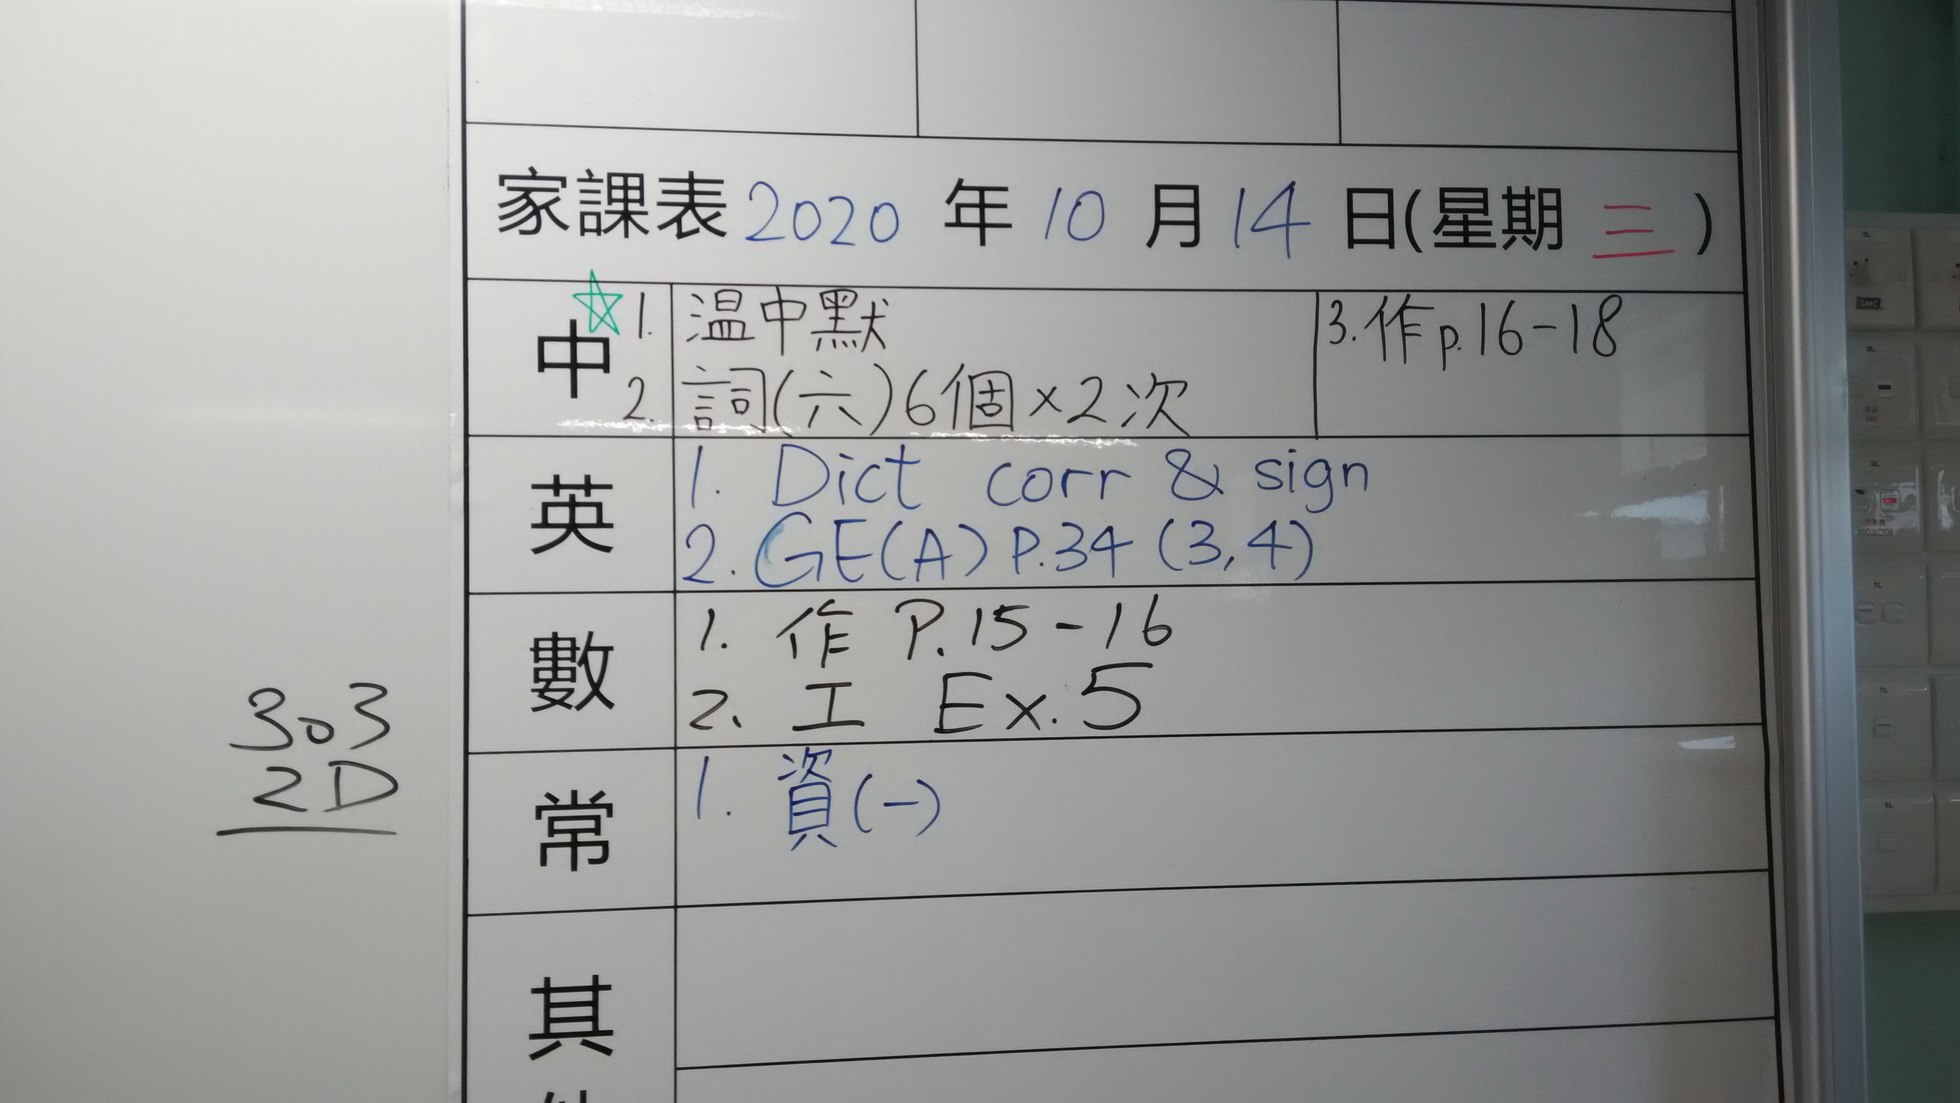 家課表 2020 年 10 月 14 日(星期 三)
中
1. 温中默
2. 詞(六)6個×2次
3. 作p.16-18
英
1. Dict corr & sign
2. GE(A) P.34 (3,4)
數
1. 作 P.15-16
2. 工 Ex.5
常
1. 資(一)
其
303
2D